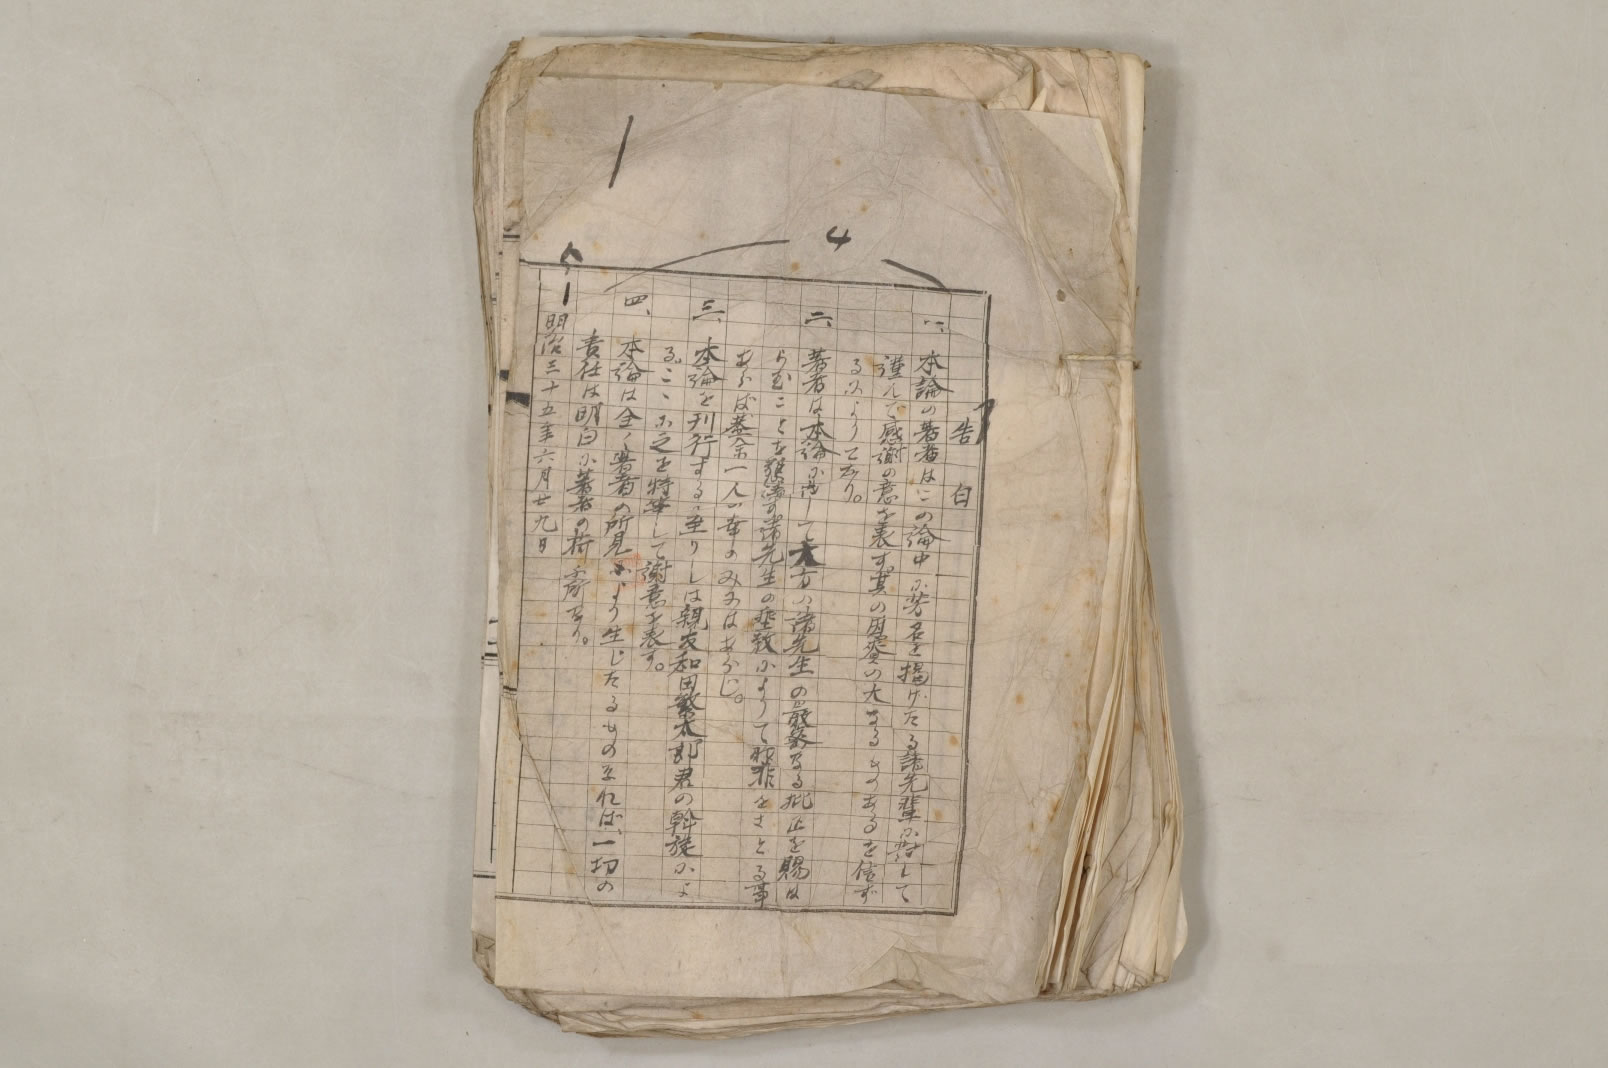 1
4
告白
一、本論の著者はこの論中に芳名を掲げたる諸先輩に対して
謹んで感謝の意を表す。其の因資の大なるものあるを信ず
るによりてなり。
二、著者は本論に対して大方の諸先生の厳築なる批正を賜は
らむことを 諸先生の垂教によりて理非をさとる事
あらば 余一人の幸のみにはあらじ。
三、本論を刊行するに至りしは親友和田繁太郎君の斡旋によ
る。ここに之を特筆して謝意を表す。
四、本論は全く著者の所見により生じたるものなれば、一切の
責任は明白に著者の 処なり。
明治三十五年六月廿九日